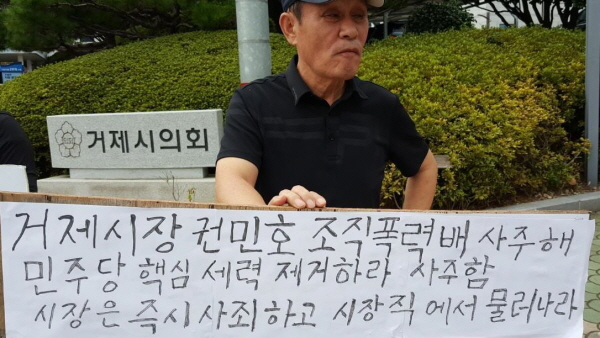 거제시의회
거제시장 권민호 조직폭력배 사주해
민주당 핵심 세력 제거하라 사주함
시장은 즉시 사죄하고 시장직에서 물러나라